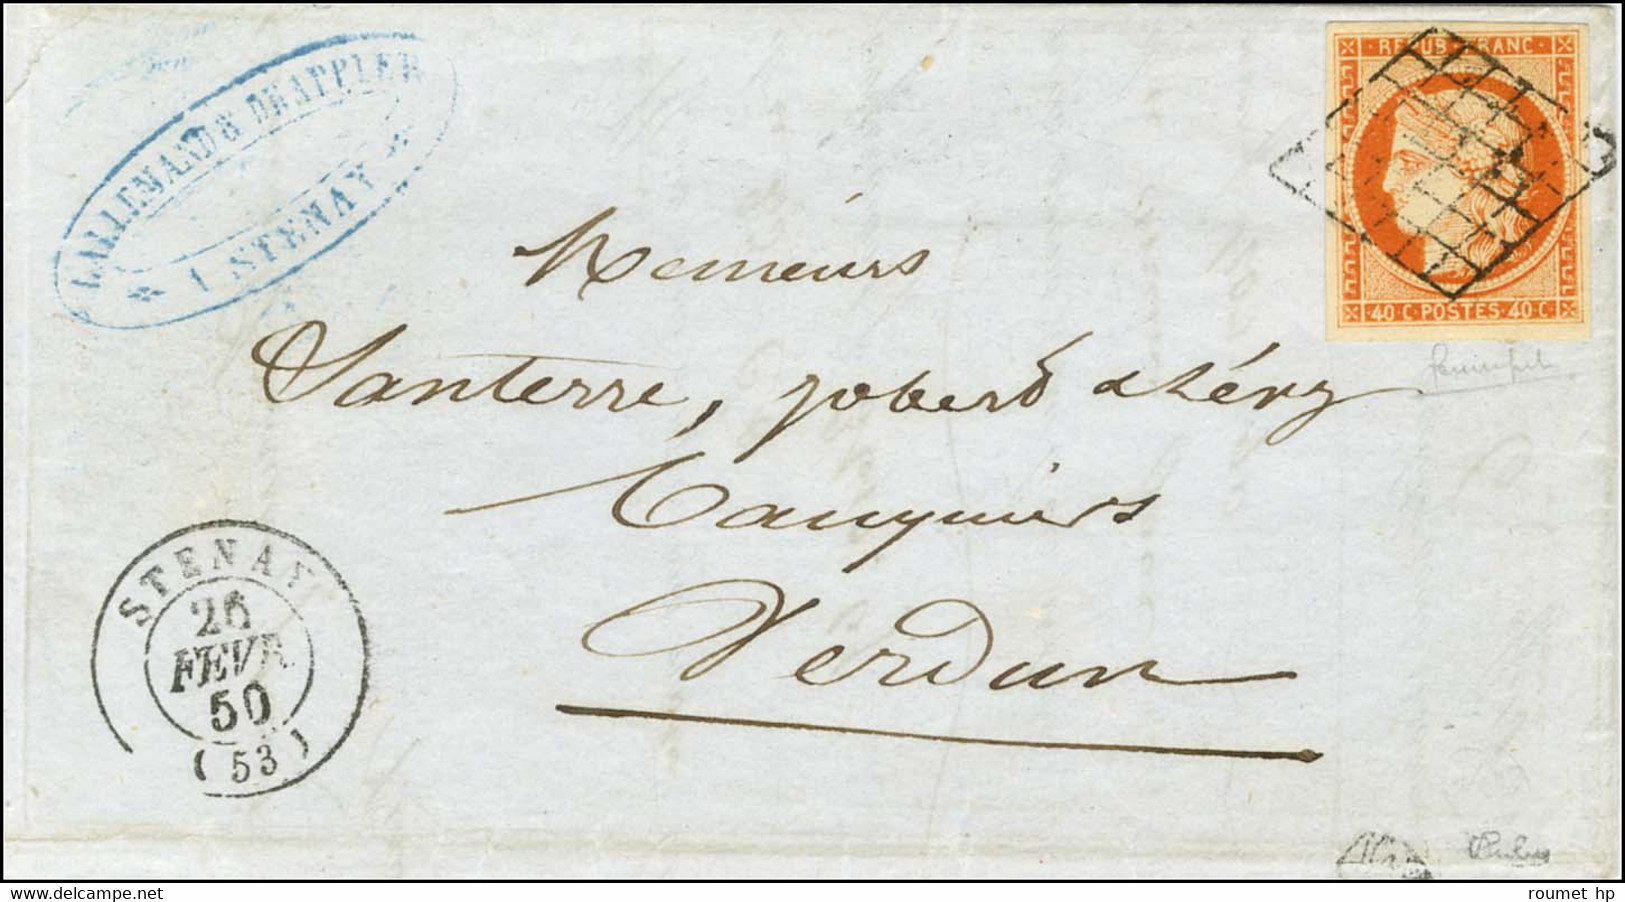 LALLEMAND & DRAPPIER
* À STENAY *
REPUB. FRANC.
40 C. POSTES 40 C.
Messieurs
Santerre, Jobert & Léry
Banquiers
Verdun
STENAY
26
FEVR
50
(53)
roumet hp